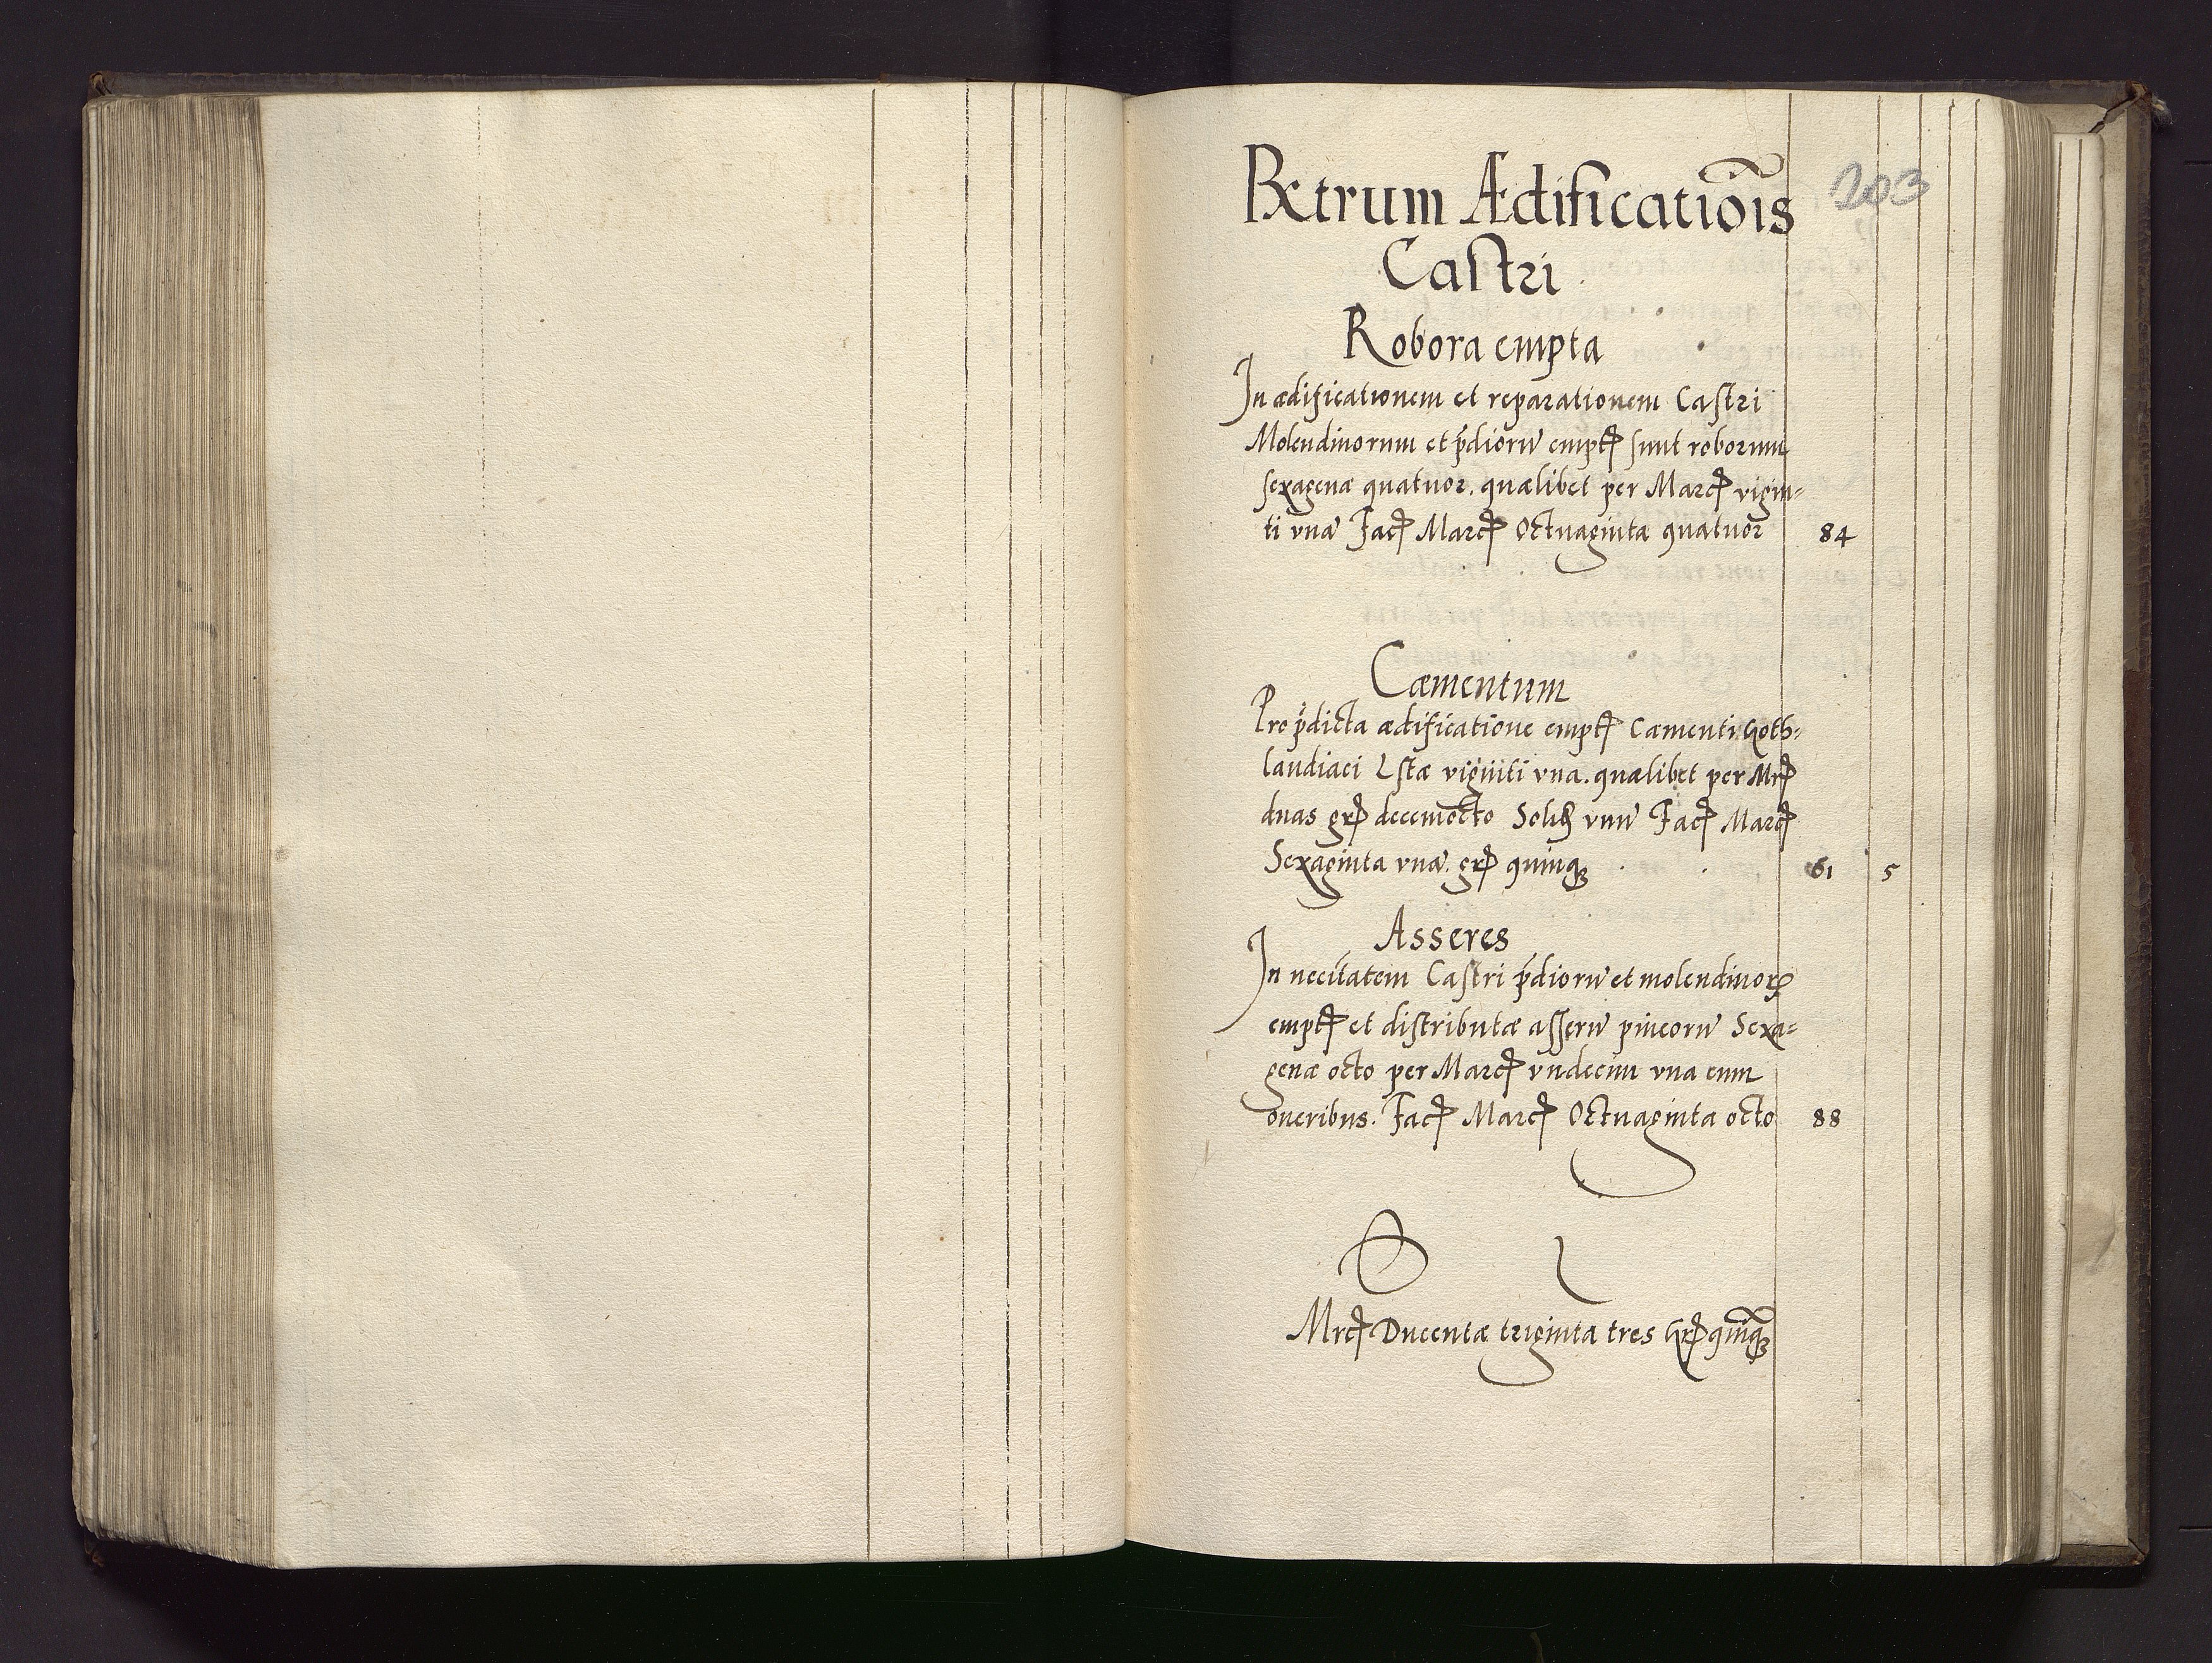 Rx̄trum Ædificatiōis
203
Castri
Robora empta
In ædificationem et reparationem Castri
Molendinorum et p̄diorū empt sunt roborum
sexagenæ quatuor. quælibet per Marc vigin=
ti vnā Fac Marc Octuaginta quatuor 84
Cæmentum
Pro p̄dicta ædificatione empt Cæmenti Goth=
landiaci Lstæ viginti vna. quælibet per Mr
duas gr decemocto Solid vnū Fac Marc
Sexaginta vnā. gr quinq 61 5
Asseres
In necītatem Castri p̄diorū et molendinor
empt et distributæ asserū pineorū Sexa=
genæ octo per Marc vndecim vna cum
oneribus. Fac Marc Octuaginta octo 88
Mrc Ducentæ triginta tres Gr quinq